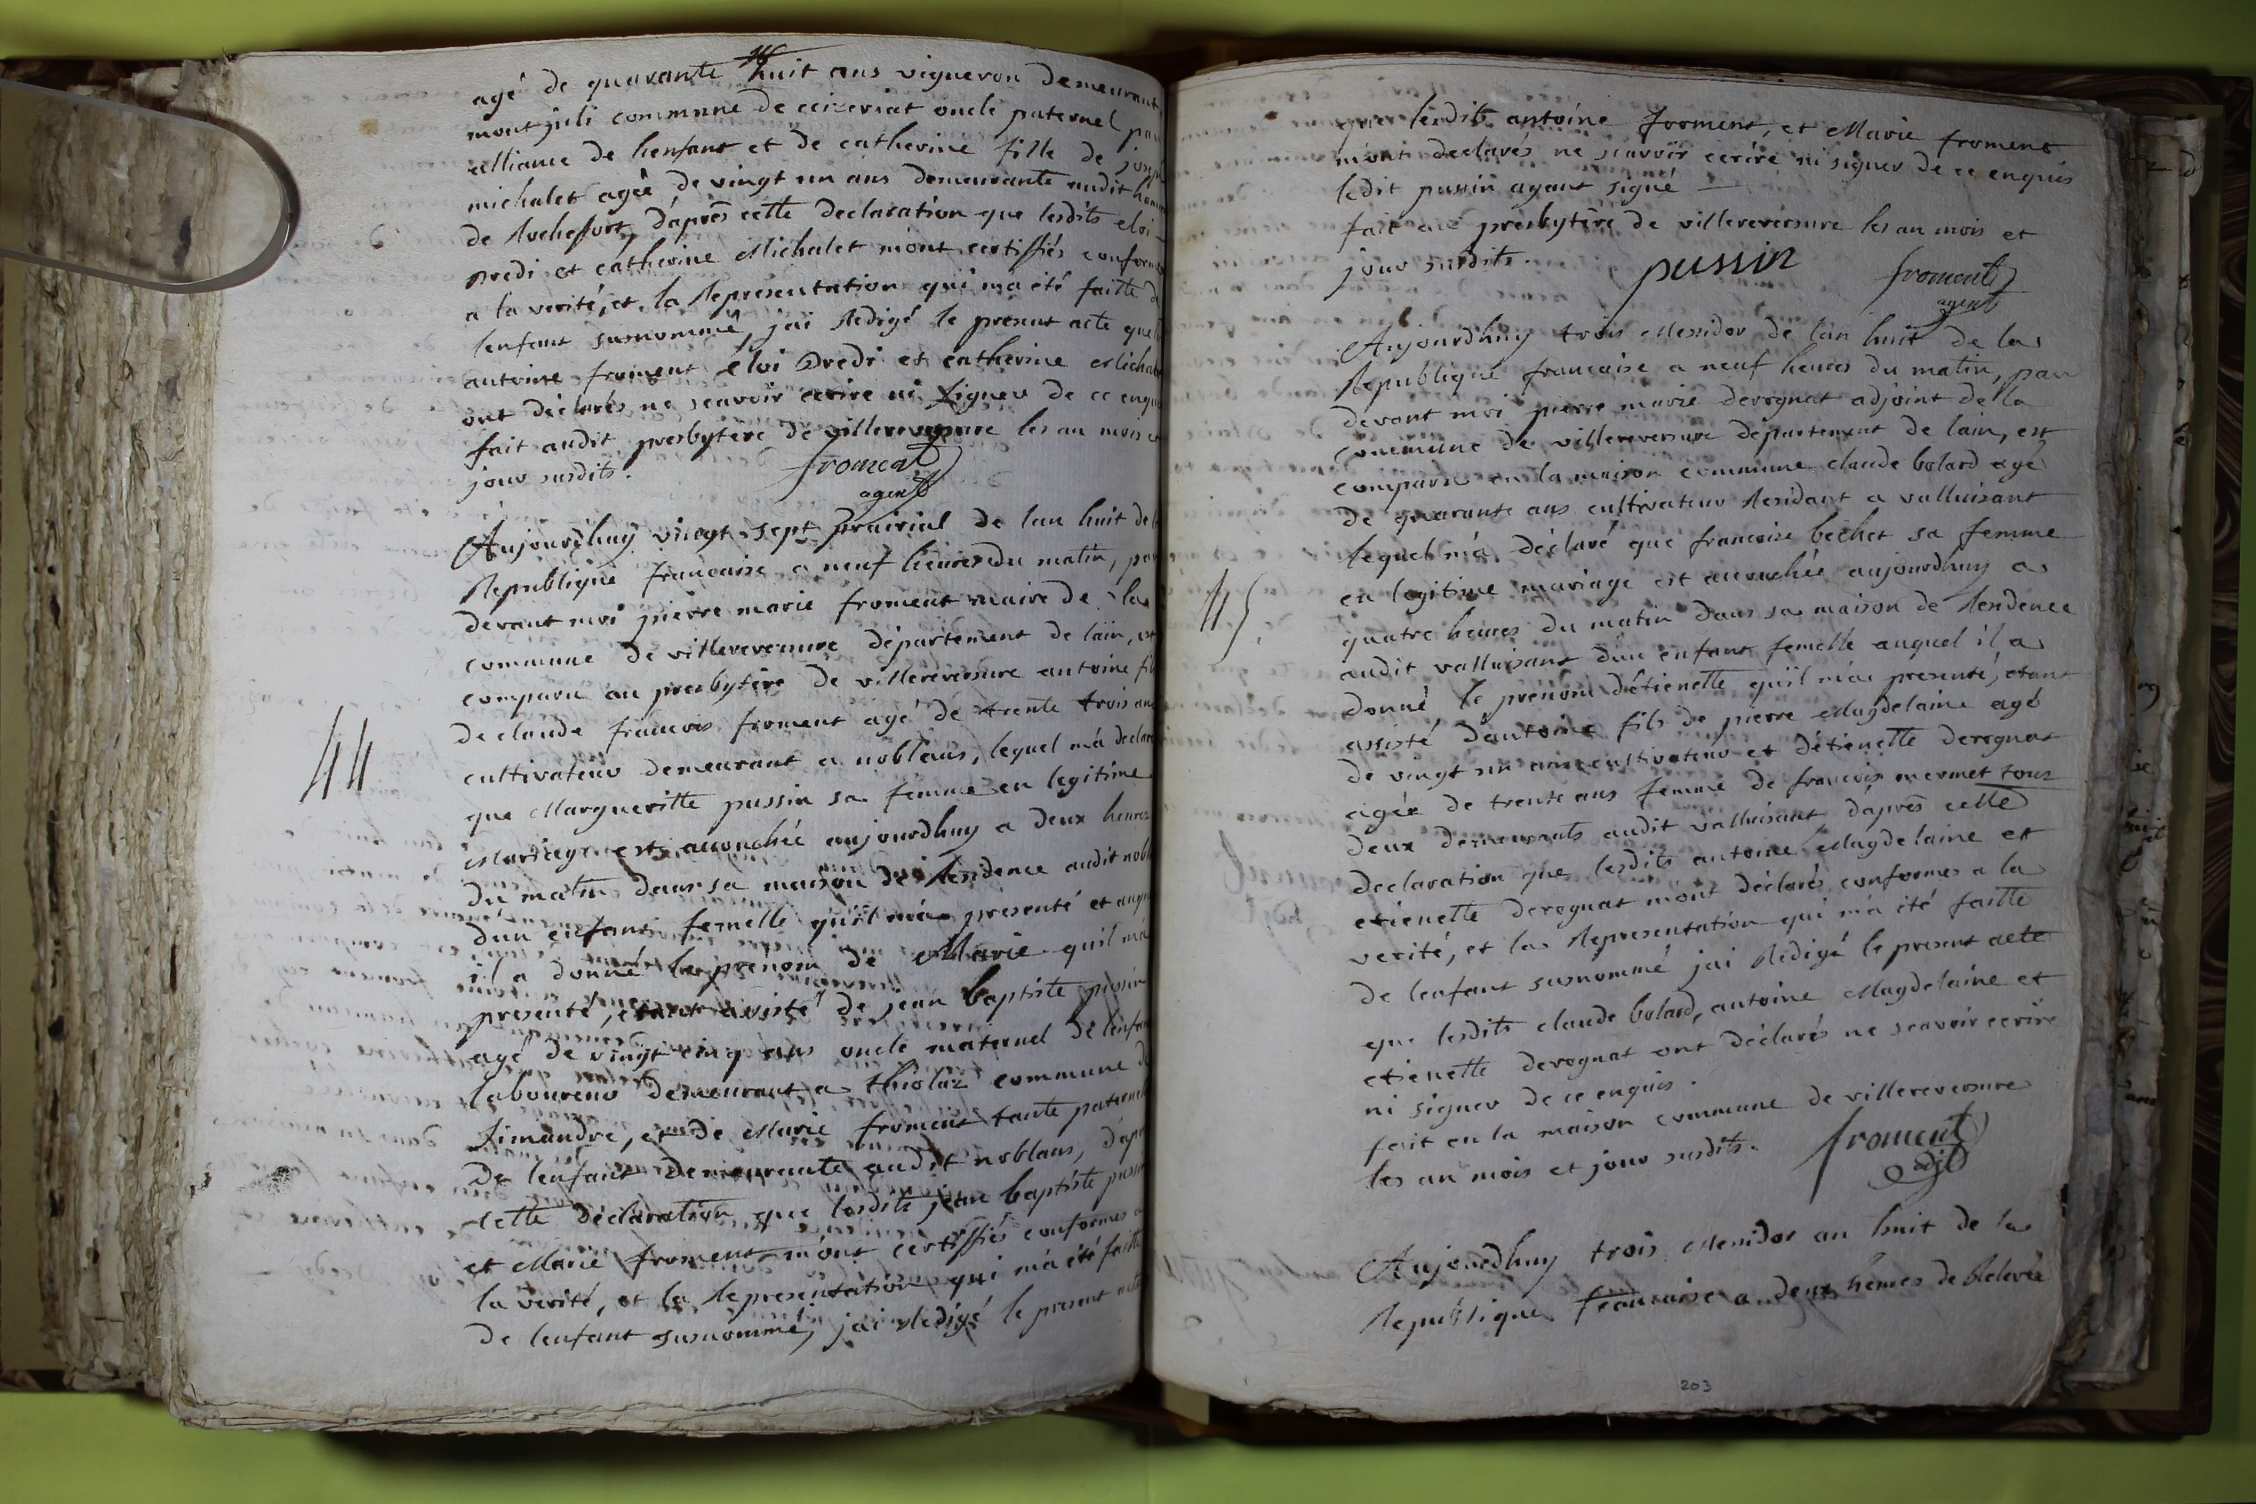 agé de quarante huit ans vigneron demeurant
montjuli commune de ceizeriat oncle paternel par
alliance de lenfant et de catherine fille de joseph
michalet agée de vingt un ans demeurante audit hameau
de Rocheffort, d'après cette declaration que lesdits eloi
predi et catherine Michalet m'ont certiffiés conforme
a la verité, et la Representation qui ma été faitte de
lenfant susnommé, jai Redigé le present acte que
antoine froment eloi predi et catherine Michalet
ont déclarés ne scavoir ecrire ni signer de ce enquis
fait audit presbytère de villereversure les an mois et
jour susdits.
froment
agent
44
Aujourdhuy vingt sept prairial de lan huit de la
Republique francaise a neuf heures du matin, par
devant moi pierre marie froment maire de la
commune de villereversure département de lain, est
comparu au presbytère de villereversure antoine fils
de claude francois froment agé de trente trois ans
cultivateur demeurant a noblans, lequel m'a declaré
que Margueritte pussin sa femme en legitime
Mariage est accouchée aujourdhuy a deux heures
du matin dans sa maison de Residence audit noblans
dun enfant femelle quil m'a presenté et auquel
il a donné le prénom de Marie quil ma
presenté, etant assisté de jean baptiste pussin
agé de vingt cinq ans oncle maternel de lenfant
laboureur demeurant a thiolaz commune de
simandre, et de Marie froment tante paternelle
de lenfant demeurante audit noblans, d'après
cette déclaration que lesdits jean baptiste pussin
et Marie froment m'ont certiffiés conformes a
la verité, et la Representation qui m'a été faitte
de lenfant susnommé, jai Redigé le present acte
que lesdits antoine froment, et Marie froment
m'ont declarés ne scavoir ecrire ni signer de ce enquis
ledit pussin ayant signé
fait au presbytère de villereversure les an mois et
jour susdits.
pussin
froment
agent
45
Aujourdhuy trois Messidor de lan huit de la
Republique francaise a neuf heures du matin, par
devant moi pierre marie derognat adjoint de la
commune de villereversure département de lain, est
comparu en la maison commune claude bolard agé
de quarante ans cultivateur Residant a valluisant
lequel m'a déclaré que francoise bechet sa femme
en legitime mariage est accouchée aujourdhuy a
quatre heures du matin dans sa maison de Residence
audit valluisant dun enfant femelle auquel il a
donné le prénom d'étienette quil m'a presenté, etant
assisté d'antoine fils de pierre Magdelaine agé
de vingt un ans cultivateur et d'étienette derognat
agée de trente ans femme de francois mermet tous
deux demeurants audit valluisant d'après cette
declaration que lesdits antoine Magdelaine et
etienette derognat mont déclarés conformes a la
verité, et la Representation qui m'a été faitte
de lenfant susnommé jai Redigé le present acte
que lesdits claude bolard, antoine Magdelaine et
etienette derognat ont déclarés ne scavoir ecrire
ni signer de ce enquis.
fait en la maison commune de villereversure
les an mois et jour susdits.
froment
adjt
Aujourdhuy trois Messidor an huit de la
Republique francaise a deux heures de Relevée
203